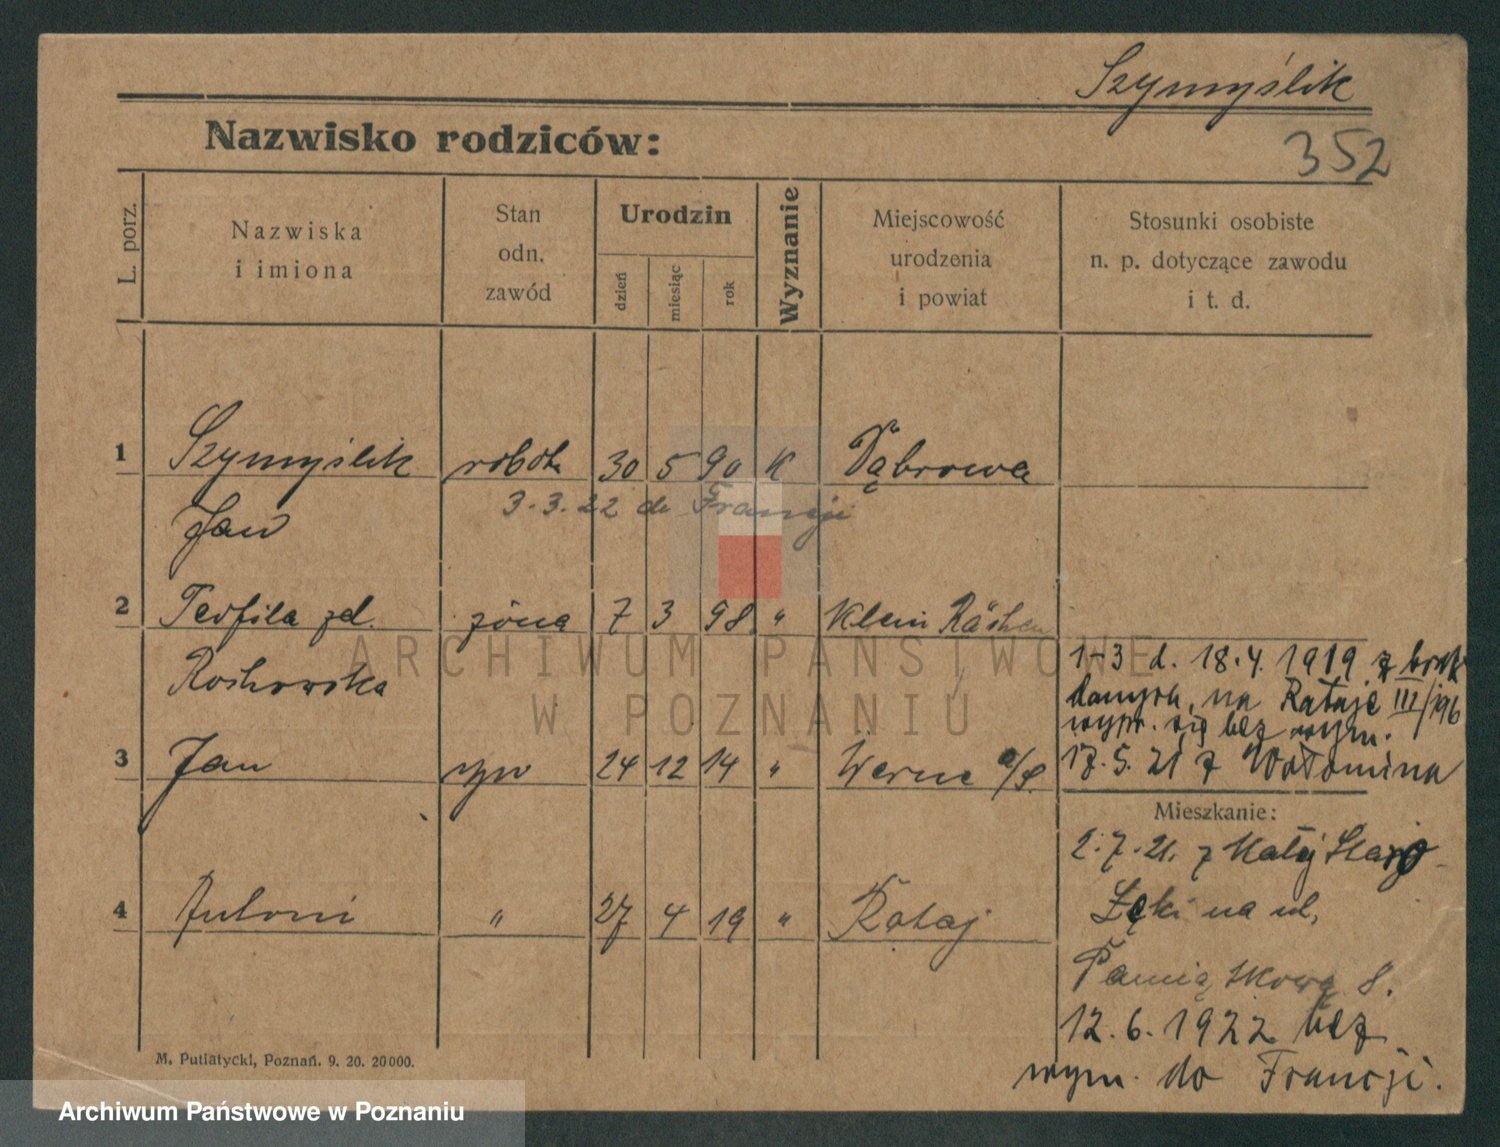 Szymyślik
Nazwisko rodziców:
352
L. porz.
Nazwiska
i imiona
Stan
odn.
zawód
Urodzin
dzień
miesiąc
rok
Wyznanie
Miejscowość
urodzenia
i powiat
Stosunki osobiste
n. p. dotyczące zawodu
i t. d.
1 Szymyślik robotn 30 5 90 K Dąbrowa
3.3.22 do Francji
Jan
2 Teofila zd. żona 7 3 98 " Klein Räschen
Roshowska
1-3 d. 18.4. 1919 z brak
danych, na Rataje III/196
wypr. się bez wym.
3 Jan syn 24 12 14 " Werne a/S. 17.5.21 z Wołomina
Mieszkanie:
2.7.21. z Małej Staro
4 Antoni " 27 4 19 " Rataj
Łęki na ul,
Pamiątkową 8.
12.6.1922 bez
wym. do Francji.
M. Putiatycki, Poznań. 9. 20. 20000.
ARCHIWUM PAŃSTWOWE
W POZNANIU
Archiwum Państwowe w Poznaniu